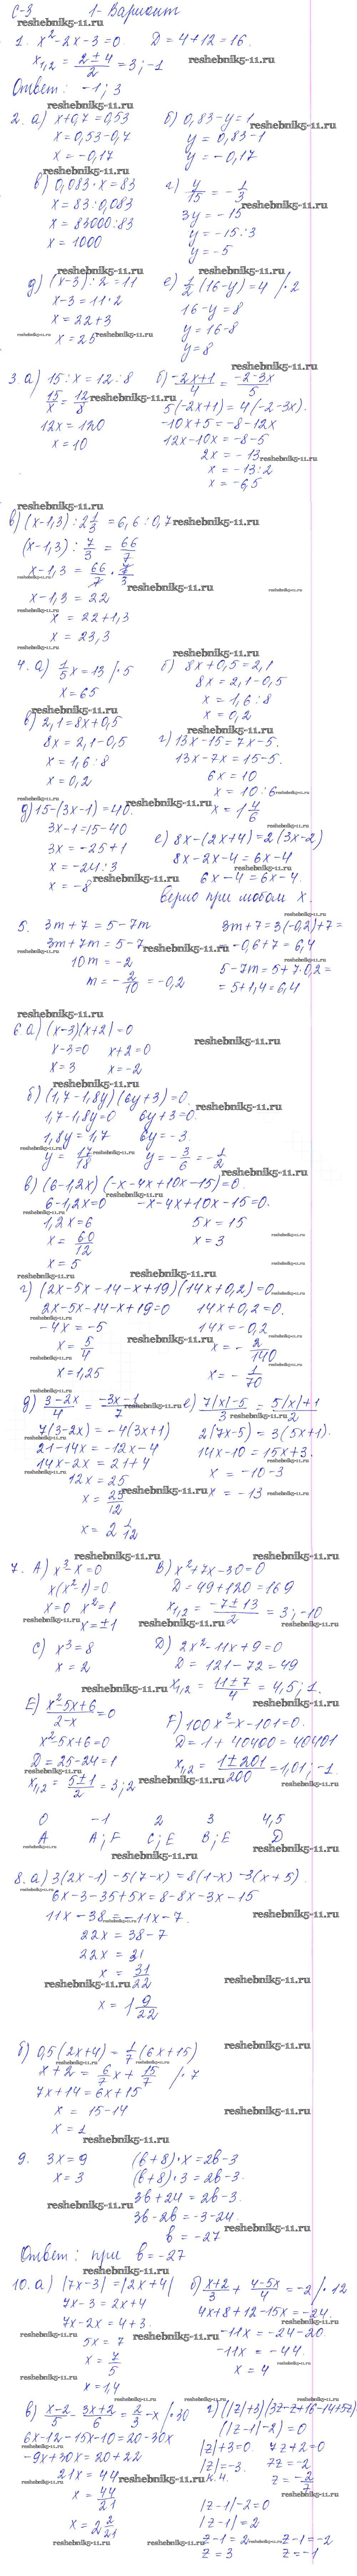 С-3 1-Вариант
1. x²-2x-3=0. D=4+12=16.
x₁,₂ = (2±4)/2 = 3; -1
Ответ: -1; 3
2. а) x+0,7=0,53 б) 0,83-y=1
x=0,53-0,7 y=0,83-1
x=-0,17 y=-0,17
в) 0,083·x=83 г) y/15 = -1/3
x=83:0,083 3y=-15
x=83000:83 y=-15:3
x=1000 y=-5
д) (x-3):2=11 е) 1/2(16-y)=4 /·2
x-3=11·2 16-y=8
x=22+3 y=16-8
x=25 y=8
3. а) 15:x=12:8 б) (-2x+1)/4 = (-2-3x)/5
15/x = 12/8 5(-2x+1)=4(-2-3x).
12x=120 -10x+5=-8-12x
x=10 12x-10x=-8-5
2x=-13
x=-13:2
x=-6,5
в) (x-1,3):2 1/3=6,6:0,7
(x-1,3):7/3 = 66/7
x-1,3 = 66/7 · 7/3
x-1,3=22
x=22+1,3
x=23,3
4. а) 1/5x=13 /·5 б) 8x+0,5=2,1
x=65 8x=2,1-0,5
x=1,6:8
x=0,2
в) 2,1=8x+0,5
8x=2,1-0,5 г) 13x-15=7x-5.
x=1,6:8 13x-7x=15-5.
x=0,2 6x=10
x=10:6
x=1 4/6
д) 15-(3x-1)=40.
3x-1=15-40 е) 8x-(2x+4)=2(3x-2)
3x=-25+1 8x-2x-4=6x-4
x=-24:3 6x-4=6x-4.
x=-8 Верно при любом x.
5. 3m+7=5-7m 3m+7=3(-0,2)+7=
3m+7m=5-7 =-0,6+7=6,4
10m=-2 5-7m=5+7·0,2=
m=-2/10=-0,2 =5+1,4=6,4
6. а) (x-3)(x+2)=0
x-3=0 x+2=0
x=3 x=-2
б) (1,7-1,8y)(6y+3)=0.
1,7-1,8y=0 6y+3=0.
1,8y=1,7 6y=-3.
y=17/18 y=-3/6=-1/2
в) (6-1,2x)(-x-4x+10x-15)=0.
6-1,2x=0 -x-4x+10x-15=0.
1,2x=6 5x=15
x=60/12 x=3
x=5
г) (2x-5x-14-x+19)(14x+0,2)=0
2x-5x-14-x+19=0 14x+0,2=0.
-4x=-5 14x=-0,2
x=5/4 x=-2/140
x=1,25 x=-1/70
д) (3-2x)/4 = (-3x-1)/7 е) (7|x|-5)/3 = (5|x|+1)/2
7(3-2x)=-4(3x+1) 2(7x-5)=3(5x+1).
21-14x=-12x-4 14x-10=15x+3.
14x-2x=21+4 x=-10-3
12x=25 x=-13
x=25/12
x=2 1/12
7. А) x³-x=0 В) x²+7x-30=0
x(x²-1)=0 D=49+120=169
x=0 x²=1 x₁,₂=(-7±13)/2=3; -10
x=±1
С) x³=8 D) 2x²-11x+9=0
x=2 D=121-72=49
x₁,₂=(11±7)/4=4,5; 1.
E) (x²-5x+6)/(2-x)=0 F) 100x²-x-101=0.
x²-5x+6=0 D=1+40400=40401
D=25-24=1 x₁,₂=(1±201)/200=1,01; -1.
x₁,₂=(5±1)/2=3; 2
0 -1 2 3 4,5
A A; F C; E B; E D
8. а) 3(2x-1)-5(7-x)=8(1-x)-3(x+5).
6x-3-35+5x=8-8x-3x-15
11x-38=-11x-7.
22x=38-7
22x=31
x=31/22
x=1 9/22
б) 0,5(2x+4)=1/7(6x+15)
x+2=6/7x+15/7 /·7
7x+14=6x+15
x=15-14
x=1
9. 3x=9 (b+8)·x=2b-3
x=3 (b+8)·3=2b-3.
3b+24=2b-3.
3b-2b=-3-24.
b=-27
Ответ: при b=-27
10. а) |7x-3|=|2x+4| б) (x+2)/3 + (4-5x)/4 = -2 /·12
7x-3=2x+4 4x+8+12-15x=-24.
7x-2x=4+3. -11x=-24-20
5x=7 -11x=-44.
x=7/5 x=4
x=1,4
в) (x-2)/5 - (3x+2)/6 = 2/3 - x /·30 г) (|z|+3)(3z-z+16-14+5z).
6x-12-15x-10=20-30x (|z-1|-2)=0
-9x+30x=20+22 |z|+3=0. 7z+2=0
21x=44 |z|=-3. 7z=-2
x=44/21 к.н. z=-2/7
x=2 2/21 |z-1|-2=0
|z-1|=2
z-1=2 z-1=-2
z=3 z=-1
reshebnik5-11.ru